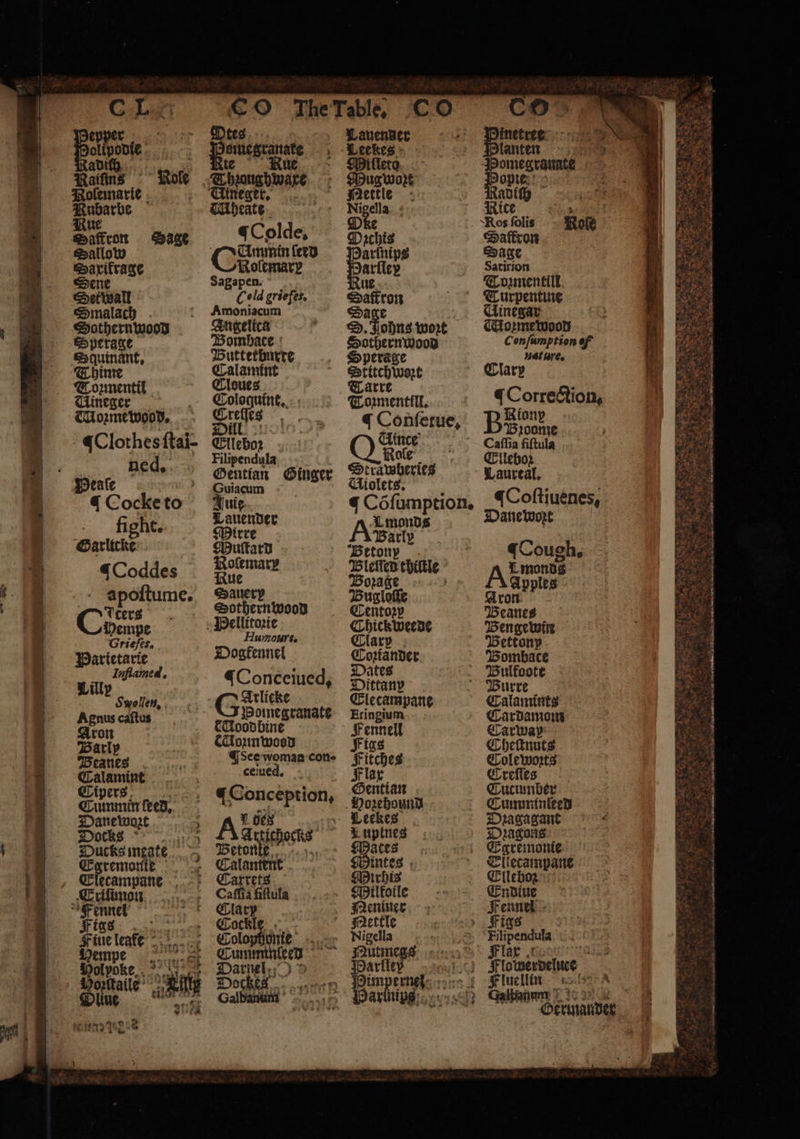 CL CO The Table, CO CO
Pepper
Polipodie
Radish
Raisins Rose
Rosemarie
Rubarbe
Rue
Saffron Sage
Sallow
Saxifrage
Sene
Setwall
Smalach
Sothernwood
Sperage
Squinant,
Thime
Tormentil
Uineger
Wormewood,
¶Clothes stai-
ned,
Pease
¶ Cocke to
fight.
Garlicke
¶Coddes
apostume.
Tcers
Hempe
Griefes.
Parietarie
Inflamed.
Lilly
Swollen,
Agnus castus
Aron
Barly
Beanes
Calamint
Cipers
Cummin seed,
Danewort
Docks
Ducks meate
Egremonie
Elecampane
Fennel
Figs
Fiue leafe
Hempe
Holyoke
Horstaile Lilly
Oliue
Otes
Pomegranate
Rie Rue
Throughware
Uineger,
Wheate
¶Colde,
CUmmin seed
Rosemary
Sagapen.
Cold griefes.
Amoniacum
Angelica
Bombace
Butterburre
Calamint
Cloues
Coloquint,
Cresses
Dill
Ellebor
Filipendula
Gentian Ginger
Guiacum
Iuie
Lauender
Mirre
Mustard
Rosemary
Rue
Sauery
Sothernwood
Pellitorie
Humours,
Dogfennel
¶Conceiued,
GArlicke
Pomegranate
Woodbine
Wormwood
¶See woman con-
ceiued,
¶Conception,
ALoes
Artichocks
Betonie
Calament
Carrets
Cassia fistula
Clary
Cockle
Colophonie
Cumminseed
Darnel,
Dockes
Galbanum
Lauender
Leekes
Misleto
Mugwort
Nettle
Nigella
Oke
Orchis
Parsnips
Parsley
Rue
Saffron
Sage
S. Johns wort
Sothernwood
Sperage
Stitchwort
Tarre
Tormentill,
¶ Conserue,
QUince
Rose
Strawberies
Uiolets,
¶ Cōsumption,
ALmonds
Barly
Betony
Blessed thistle
Borage
Buglosse
Centory
Chickweede
Clary
Coriander
Dates
Dittany
Elecampane
Eringium
Fennell
Figs
Fitches
Flax
Gentian
Horehound
Leekes
Lupines
Maces
Mintes
Mirhis
Milfoile
Neniuer
Nettle
Nigella
Nutmegs
Parsley
Pimpernel
Parsnips
Pinetree
Planten
Pomegranate
Popie
Radish
Rice
Ros solis Rose
Saffron
Sage
Satirion
Tormentill
Turpentine
Uinegar
Wormewood
Consumption of
nature,
Clary
¶ Correction,
PIony
Broome
Cassia fistula
Ellebor
Laureal,
¶Costiuenes,
Danewort
¶Cough,
ALmonds
Apples
Aron
Beanes
Bengewin
Bettony
Bombace
Bulfoote
Burre
Calamints
Cardamom
Carway
Chestnuts
Coleworts
Cresses
Cucumber
Cumminseed
Dragagant
Dragons
Egremonie
Ellecampane
Ellebor
Endiue
Fennel
Figs
Filipendula
Flax
Flowerdeluce
Fluellin
Galbanum
Germander